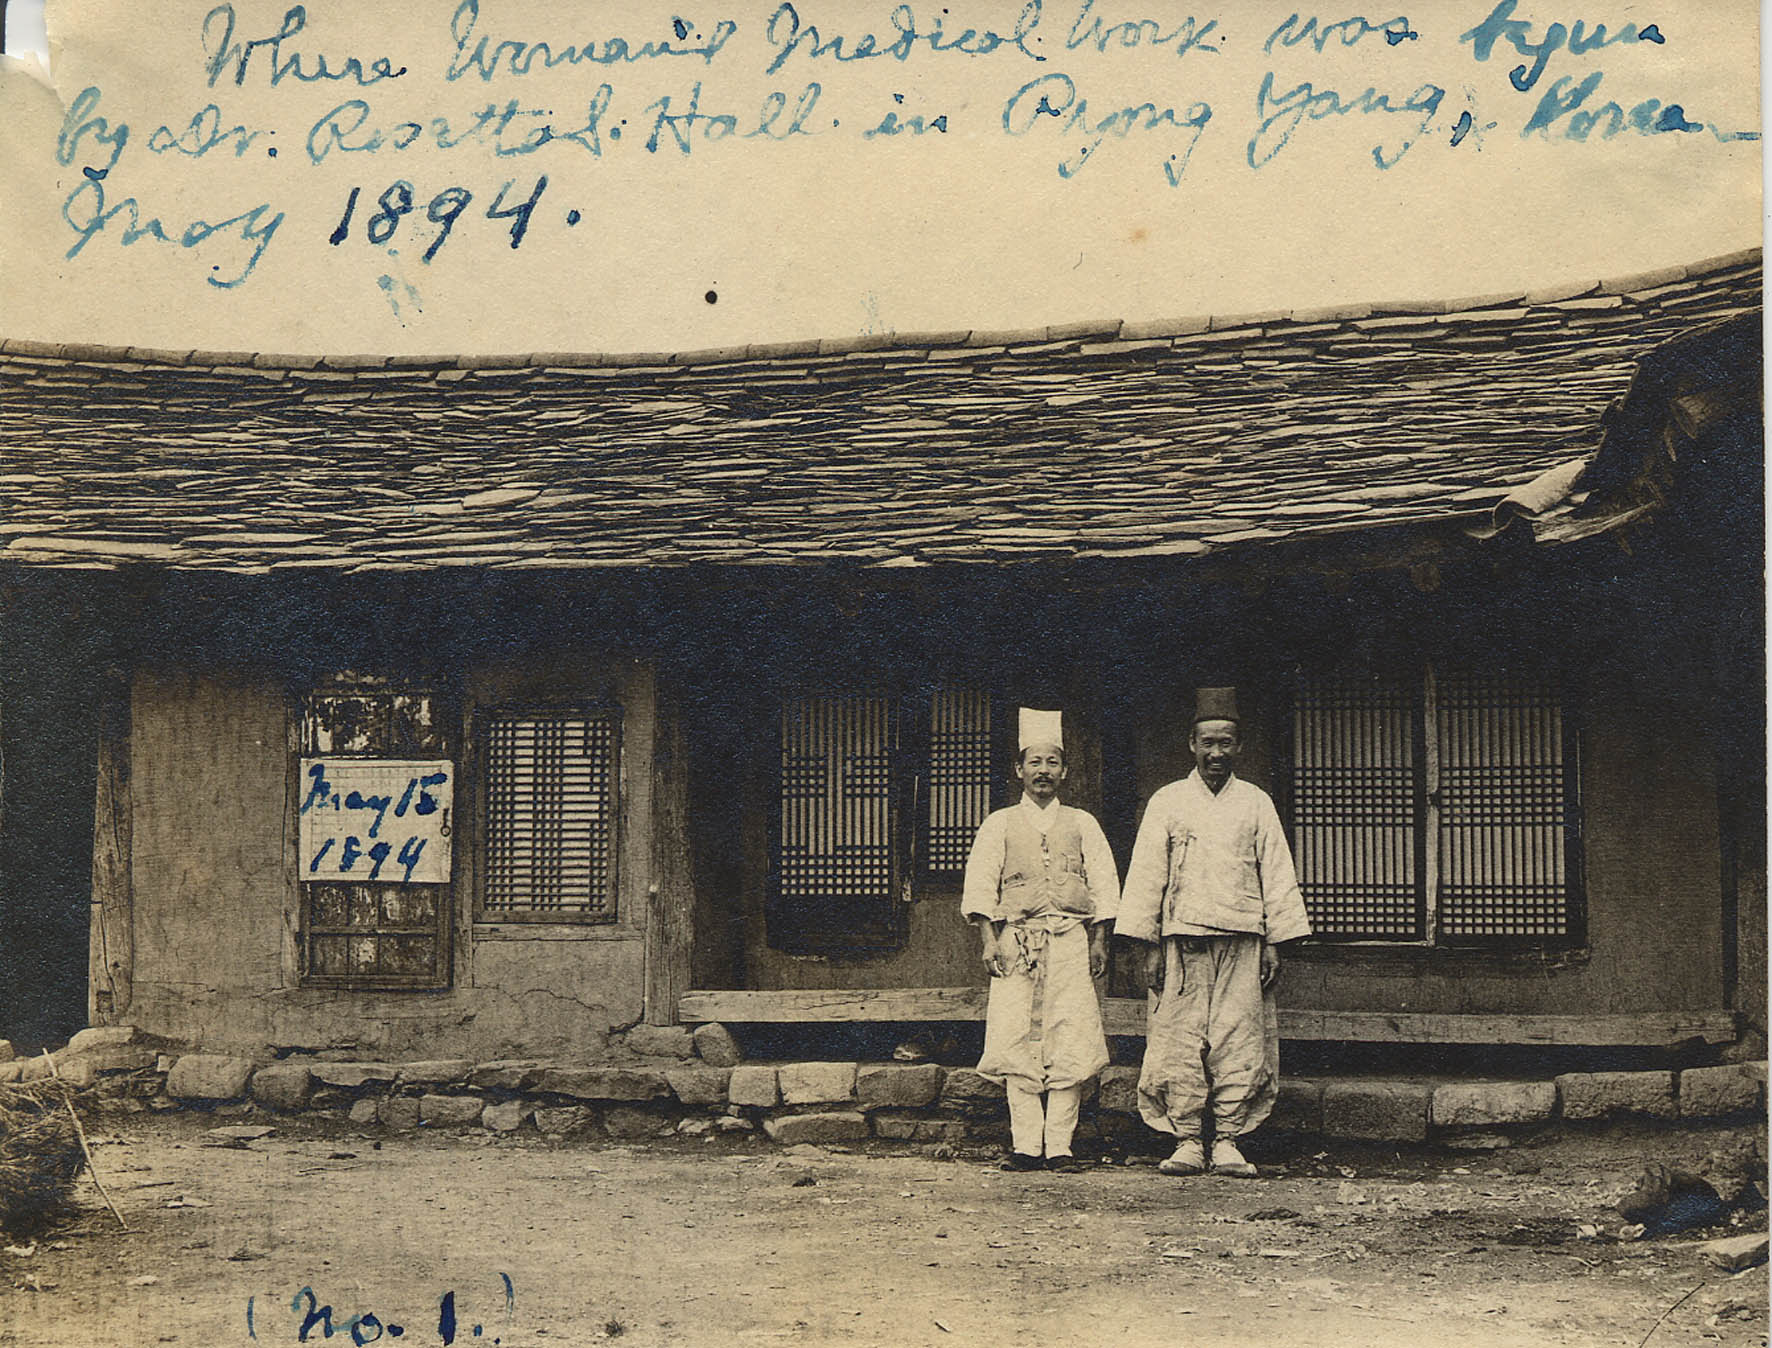 Where Woman's Medical Work was begun
by Dr. Rosetta S. Hall in Pyong Yang, Korea—
May 1894.
May 15
1894
(No. 1.)